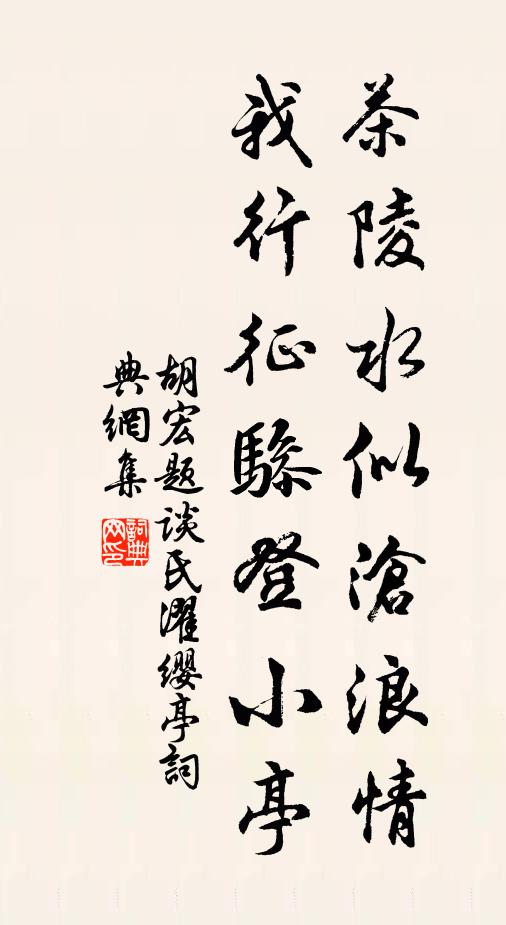 茶陵水似滄浪情
我行征驂登小亭
胡宏題談氏濯纓亭詞
典網集
詞典网印